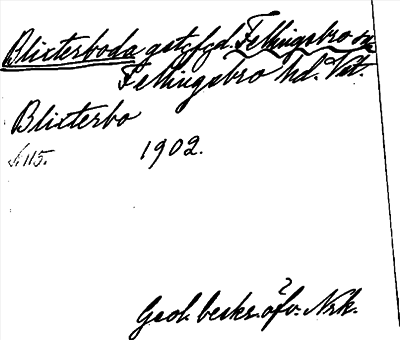 Blixterboda gstg fgd. Fellingsbro sn
Fellingsbro hd. Vst.
Blixterbo
s. 115. 1902.
Geol. beskr. öfv. Nrk.